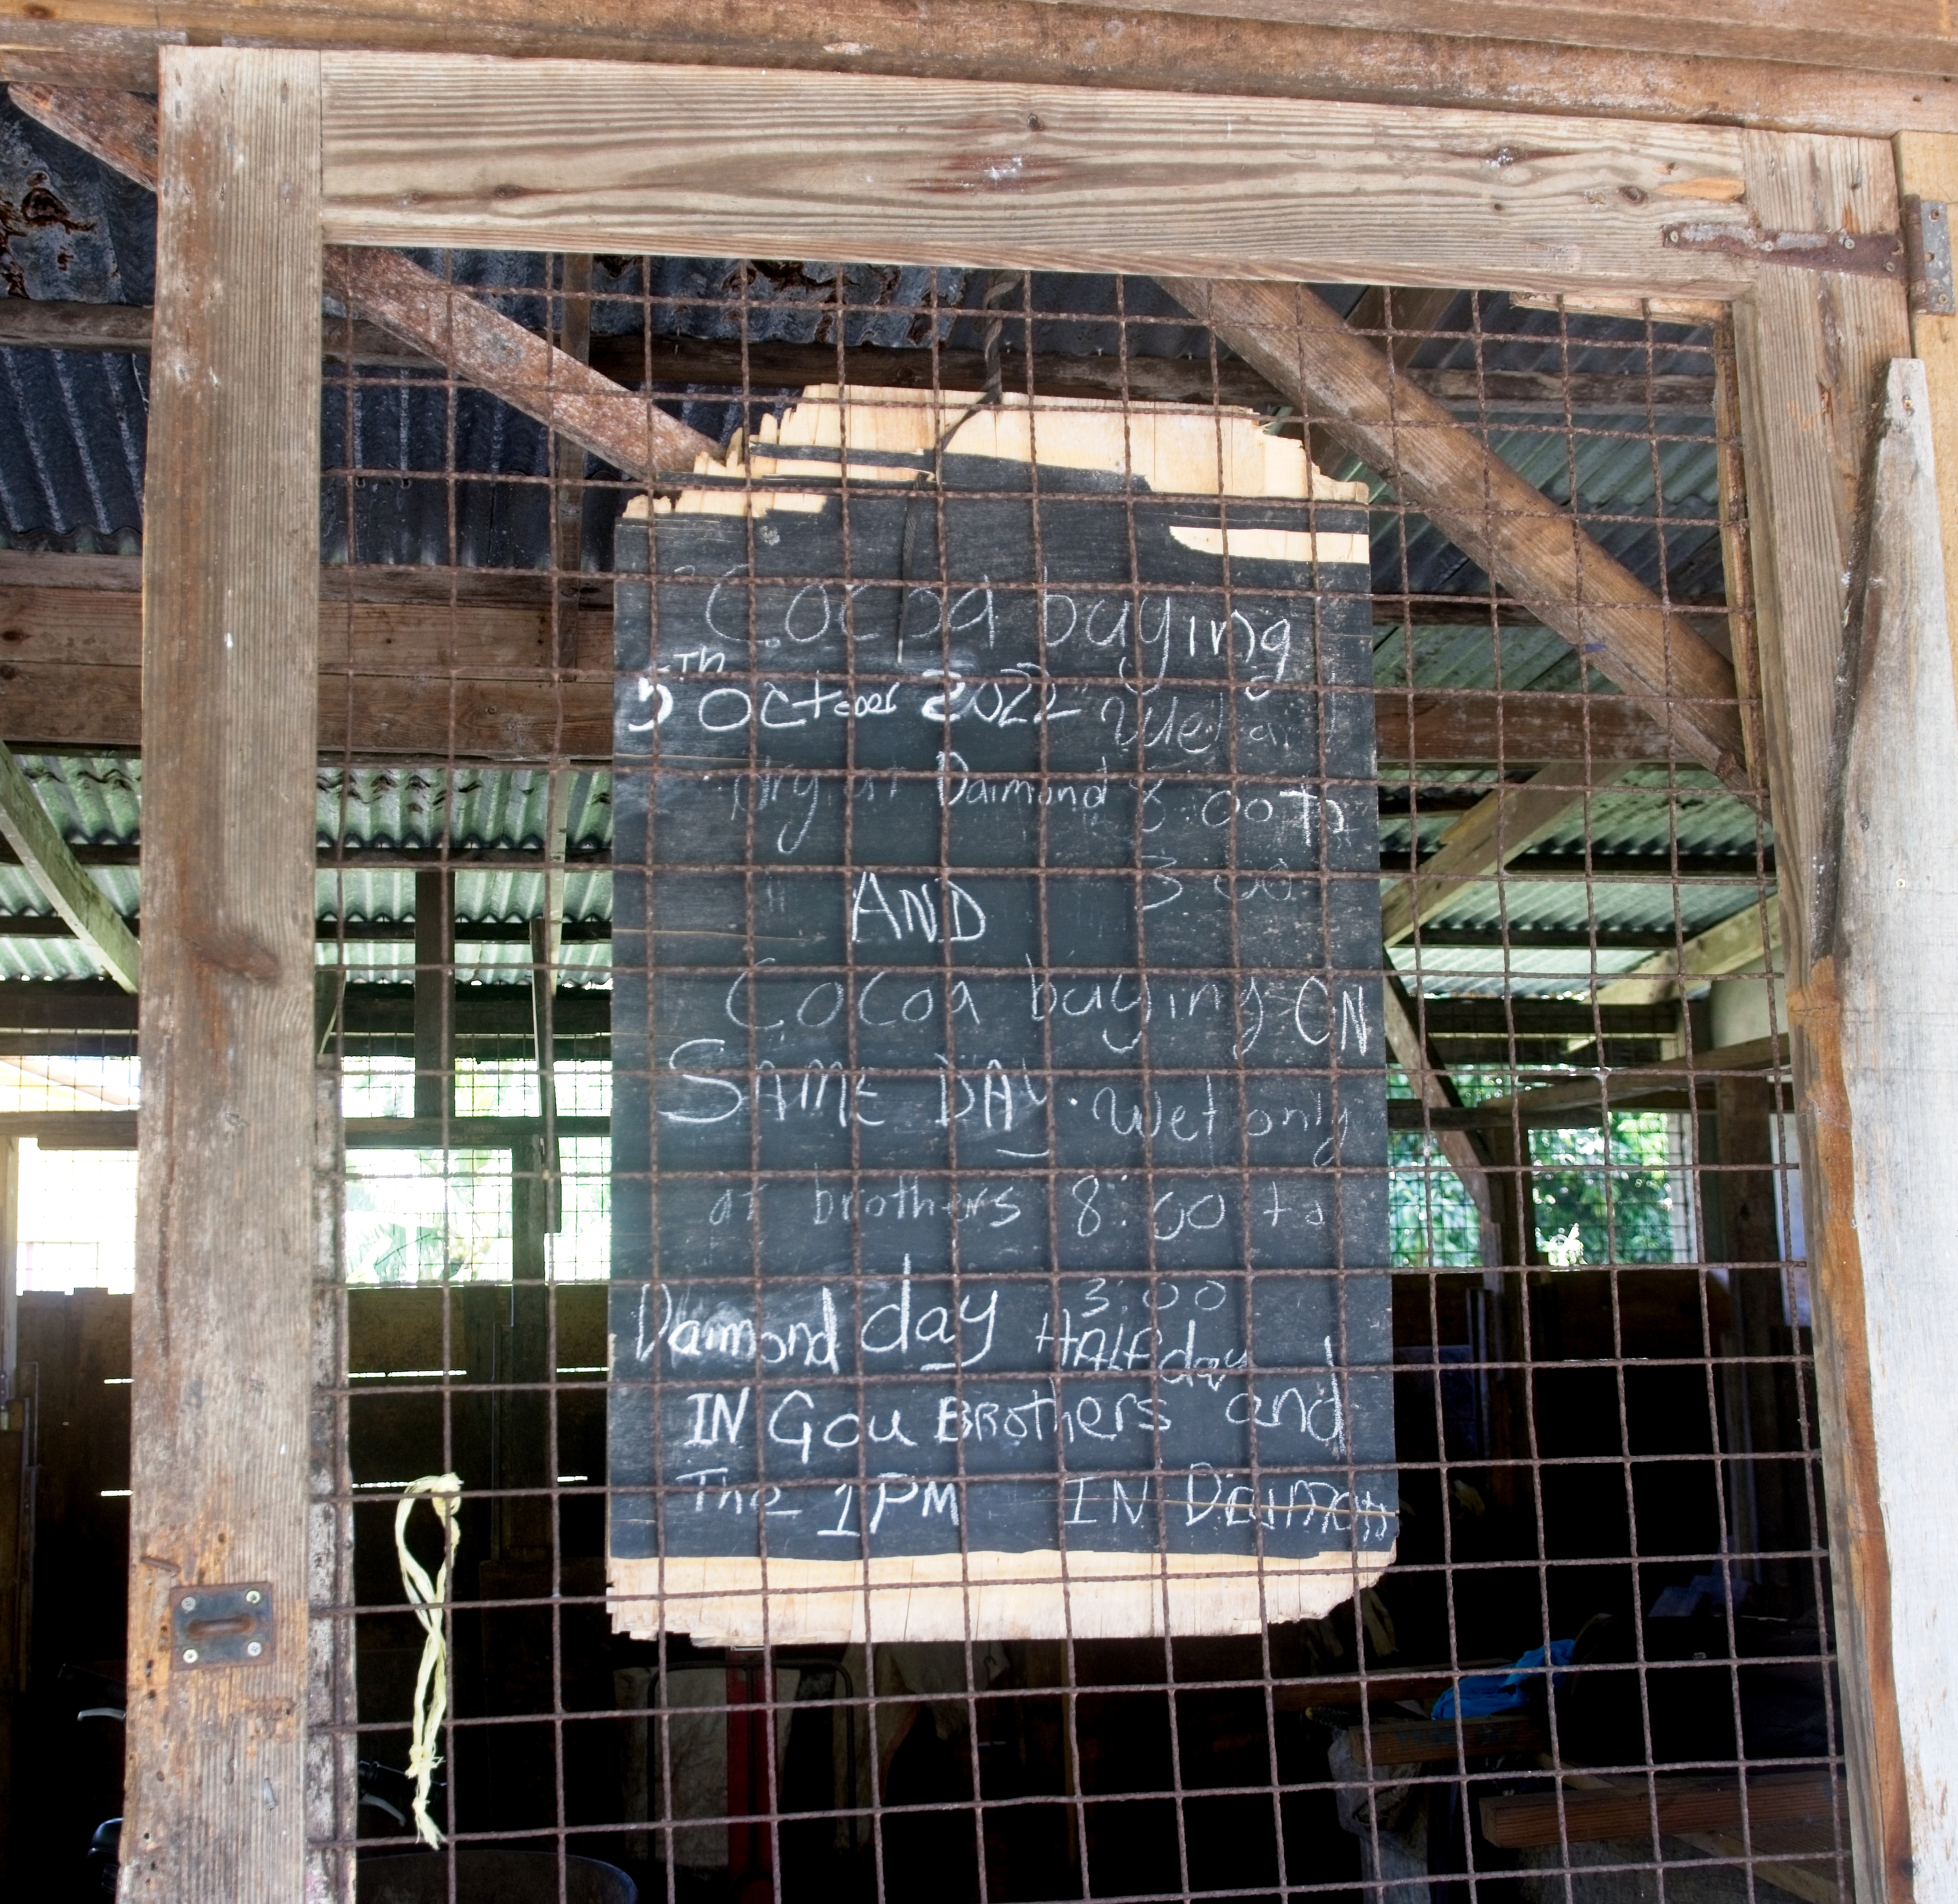 Cocoa buying
5TH October 2022 Wet
Dry at Daimond 8:00 To
3:00
AND
Cocoa buying ON
SAME DAY. Wet only
at brothers 8:00 to
3:00
Daimond day HALF day
IN Gou BRothers and
The 1PM IN Daimon